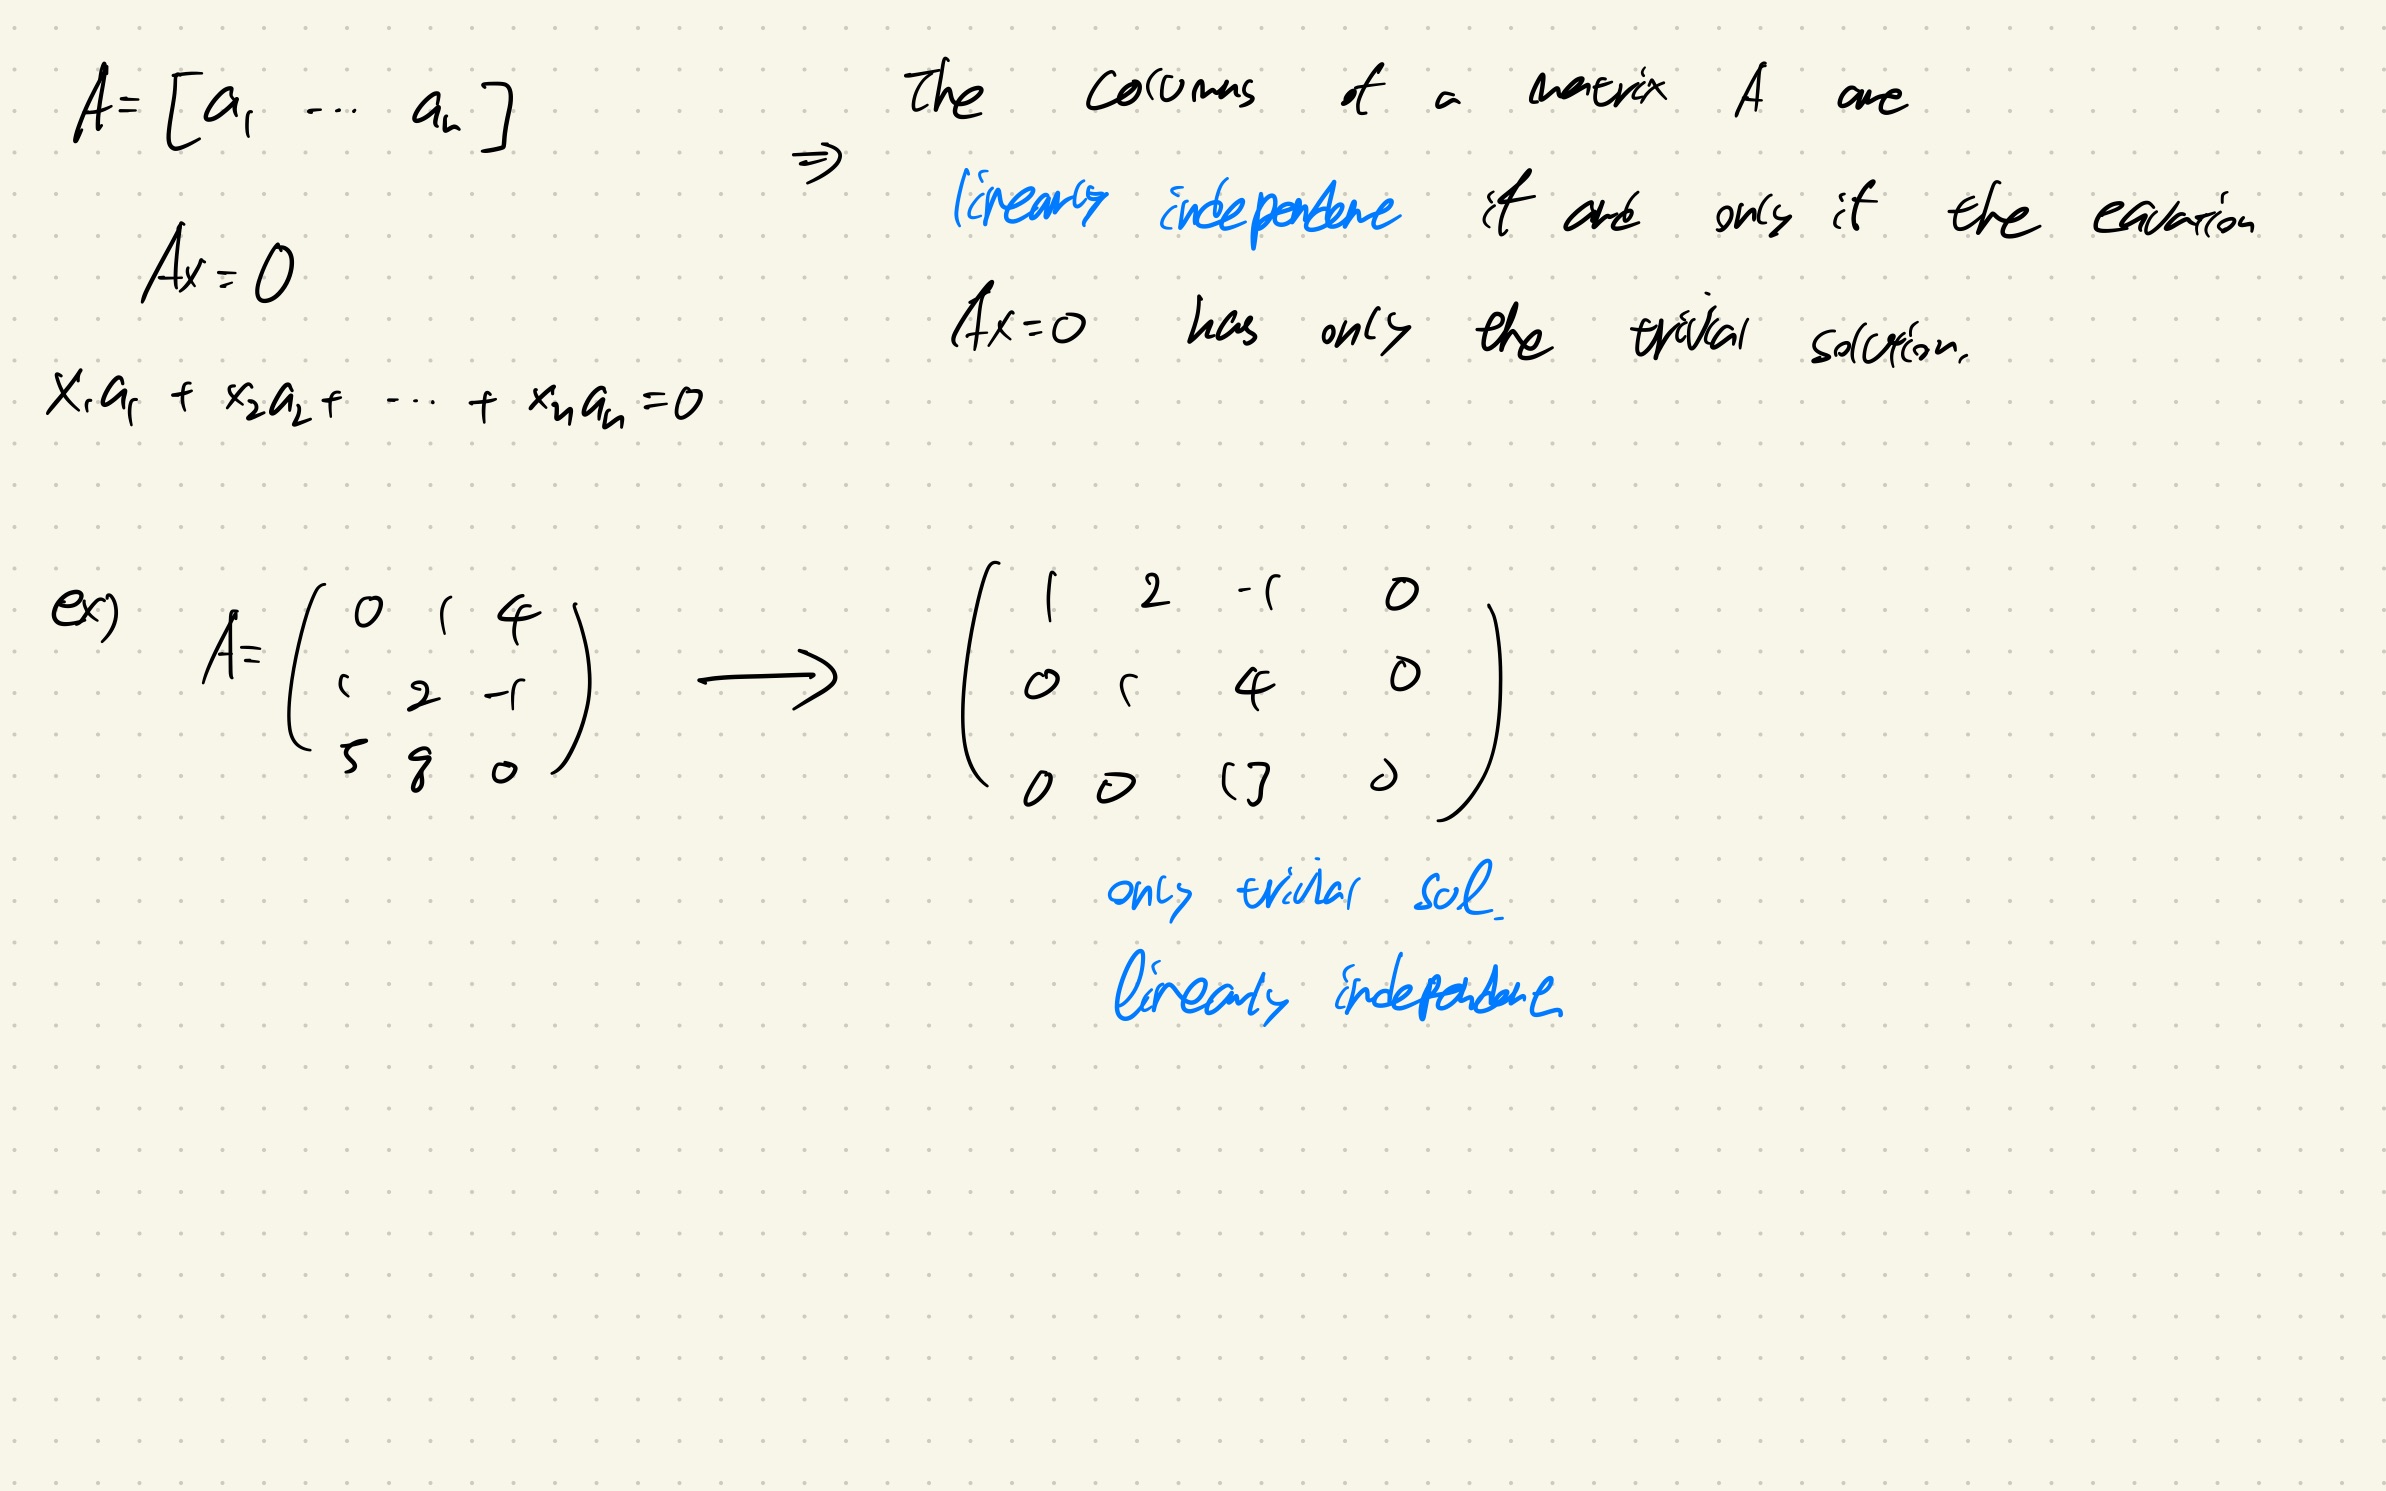 A = [a₁ ... aₙ]
Ax = 0
x₁a₁ + x₂a₂ + ... + xₙaₙ = 0
⇒ The columns of a matrix A are
linearly independent if and only if the equation
Ax=0 has only the trivial solution.
ex) A = ( 0 1 4
1 2 -1
5 8 0 )
→
( 1 2 -1 0
0 1 4 0
0 0 13 0 )
only trivial sol.
linearly independent